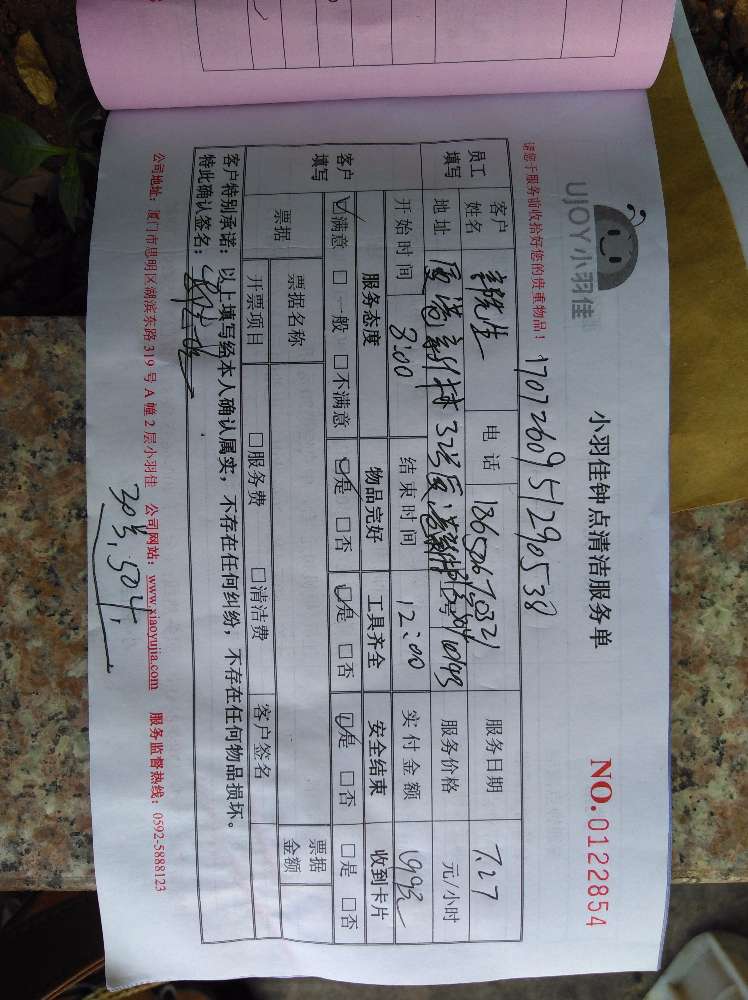 UJOY小羽佳
小羽佳钟点清洁服务单
NO.0122854
请您于服务前收拾好您的贵重物品！
170726095129053 8
员工填写
客户姓名
电话
服务日期 7.27
地址
服务价格 元/小时
开始时间 8:00 结束时间 12:00 实付金额
客户填写
服务态度 物品完好 工具齐全 安全结束 收到卡片
☑满意 □一般 □不满意 ☑是 □否 ☑是 □否 ☑是 □否 □是 □否
票据 票据名称 票据金额
开票项目 □服务费 □清洁费 客户签名
客户特别承诺：以上填写经本人确认属实，不存在任何纠纷，不存在任何物品损坏。
特此确认签名：
公司地址：厦门市思明区湖滨东路319号A幢2层小羽佳 公司网站：www.xiaoyujia.com 服务监督热线：0592-5888123